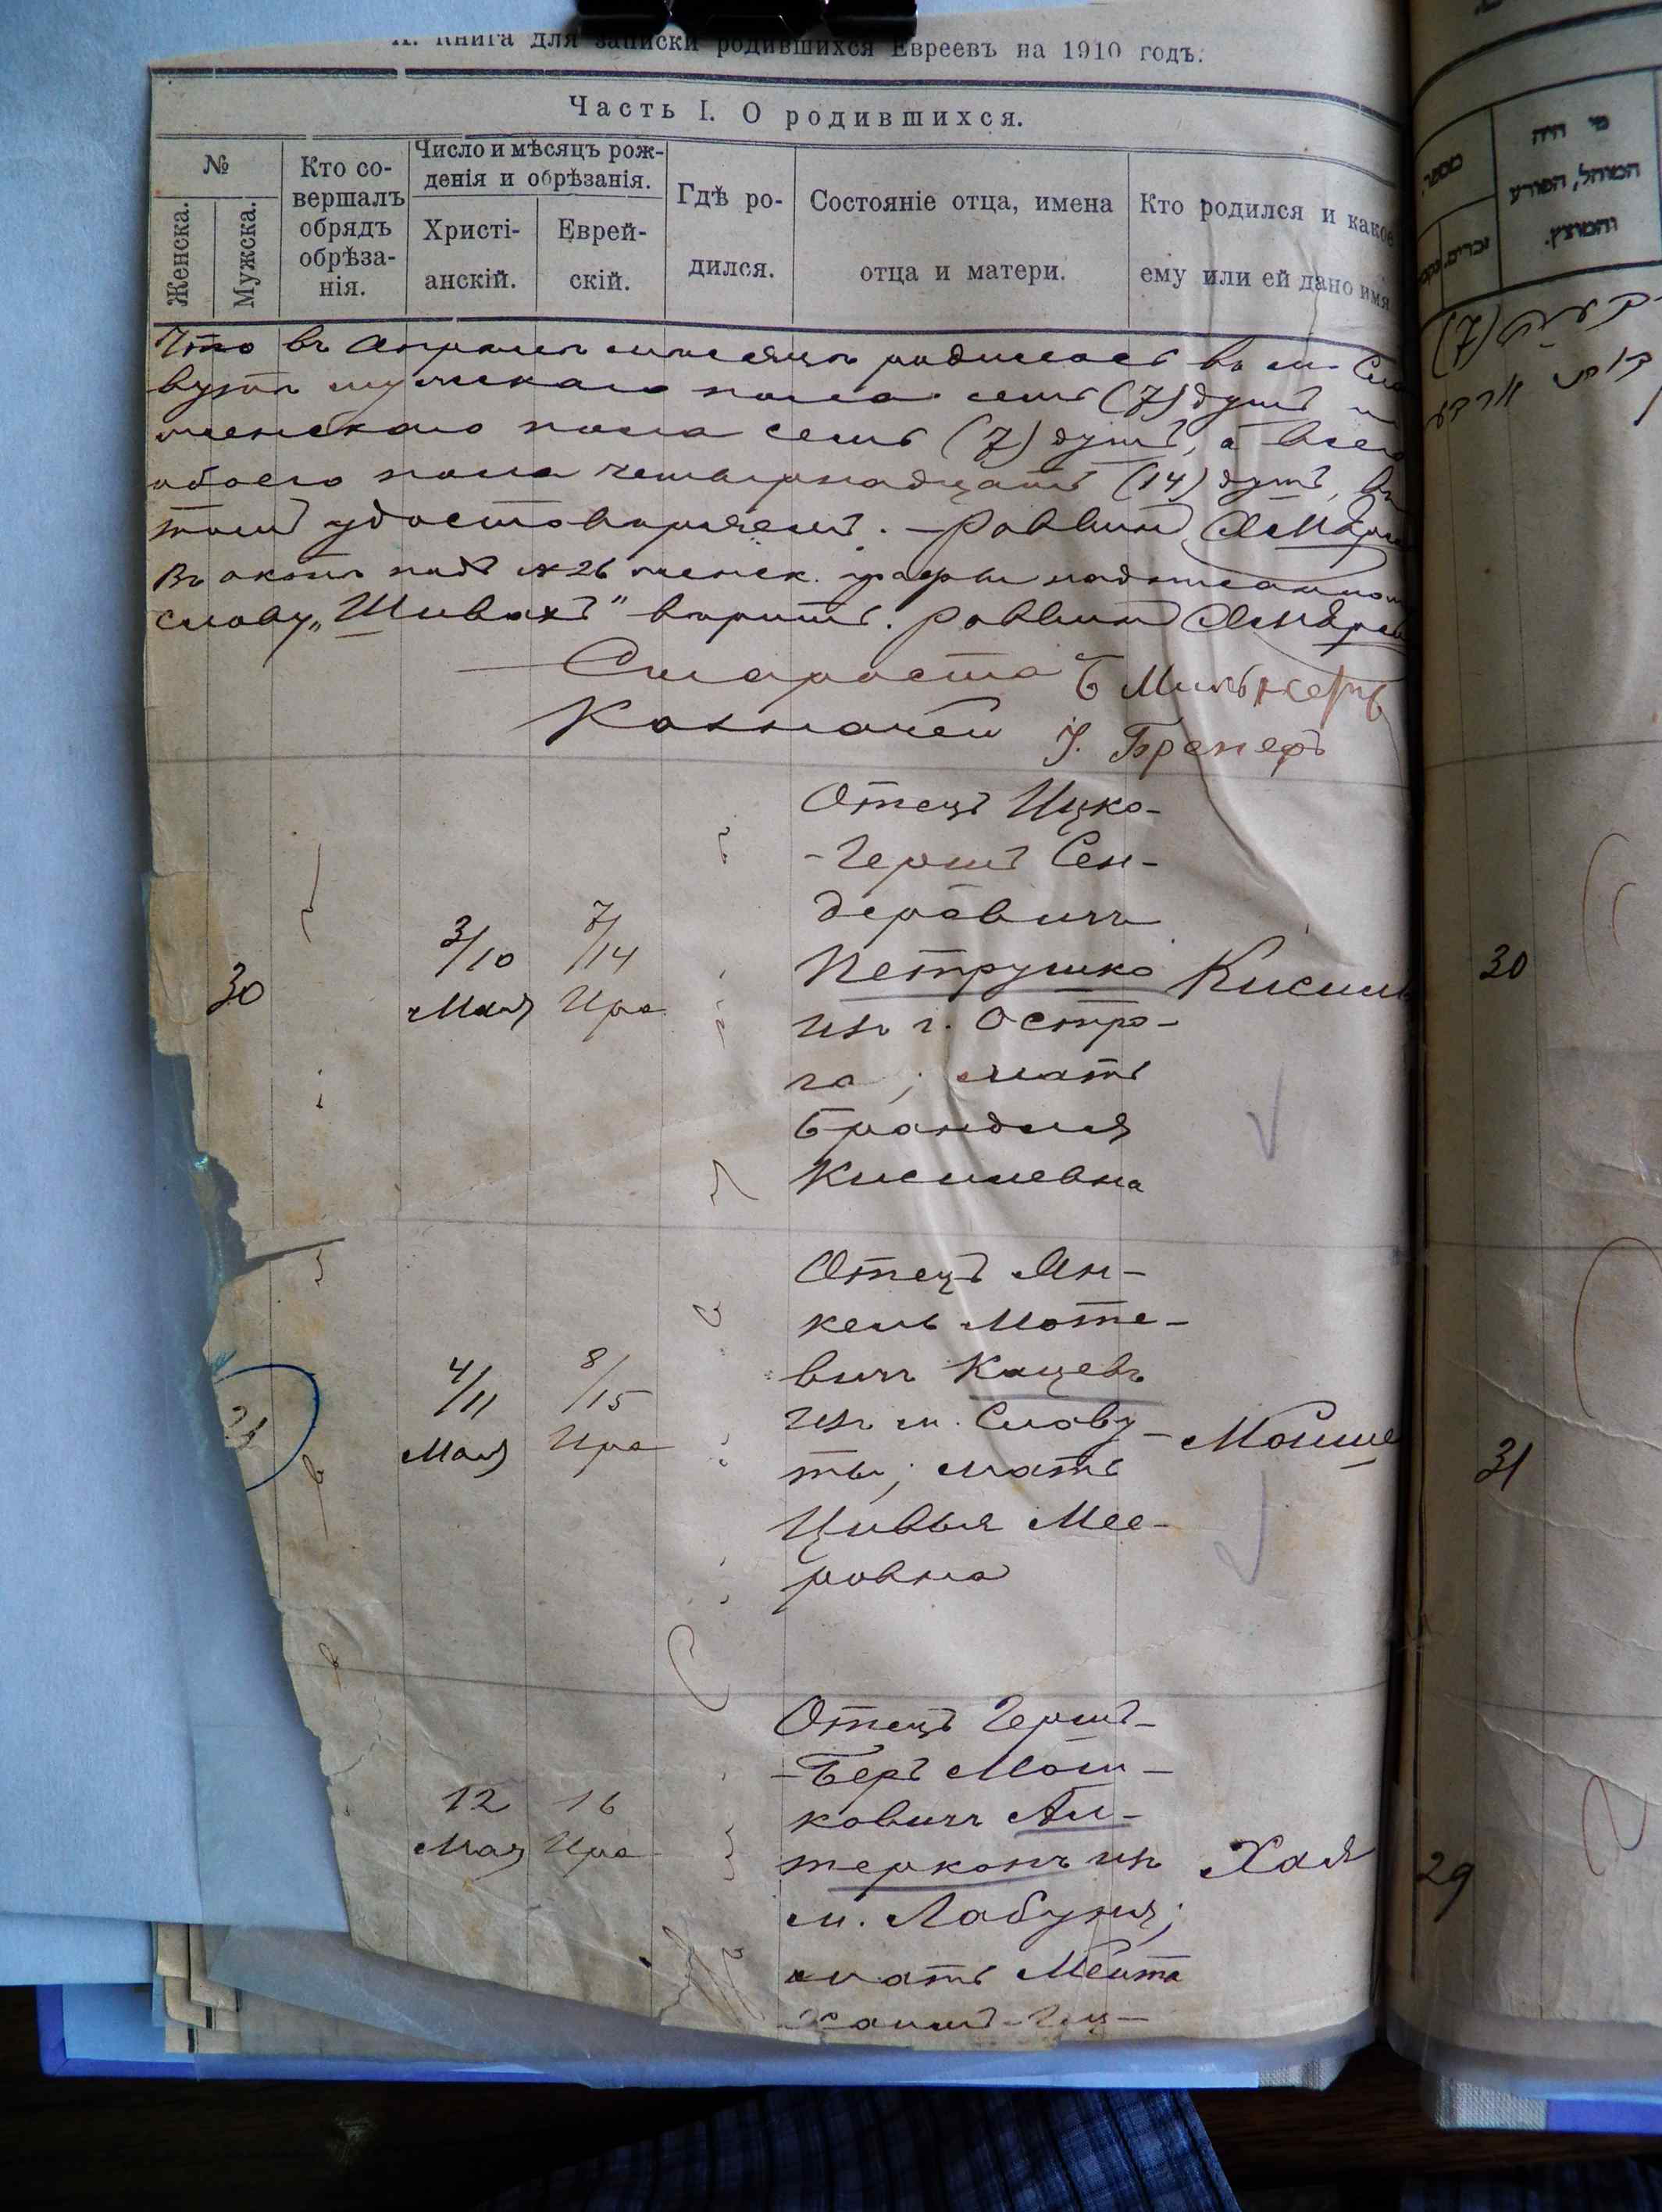 Книга для записки родившихся Евреевъ на 1910 годъ.
Часть I. О родившихся.
№
Женска.
Мужска.
Кто со-
вершалъ
обрядъ
обрѣза-
нія.
Число и мѣсяцъ рож-
денія и обрѣзанія.
Христі-
анскій.
Еврей-
скій.
Гдѣ ро-
дился.
Состояніе отца, имена
отца и матери.
Кто родился и какое
ему или ей дано имя
Что въ Апрѣлѣ мѣсяцѣ родилось въ м. Сла
вутѣ мужскаго пола семь (7) душъ и
женскаго пола семь (7) душъ, а всего
обоего пола четырнадцать (14) душъ, въ
томъ удостовѣряемъ. – Раввинъ
Въ актѣ подъ № 26 женск. графы надписанному
слову „Шивахъ" вѣрить. Раввинъ
Староста Б Мильжеръ
Казначей У. Бренеръ
30
3/10
Мая
7/14
Ира
Отецъ Ицко-
-Гершъ Сен-
деровичъ
Петрушко
изъ г. Остро-
га; мать
Брандля
Кисилевна
Кисиль
30
4/11
Мая
8/15
Ира
Отецъ Ян-
кель Моте-
вичъ Кацевъ
изъ м. Славу-
ты; мать
Цивья Мее-
ровна
Мойше
31
12
Мая
16
Ира
Отецъ Гершъ-
-Беръ Мош-
ковичъ Ап-
терконъ изъ
м. Лабуня;
мать Мейта
Хая
29
מספר.
זכרים.
מי היה
המוהל, הפורע
והמוצץ.
(7)